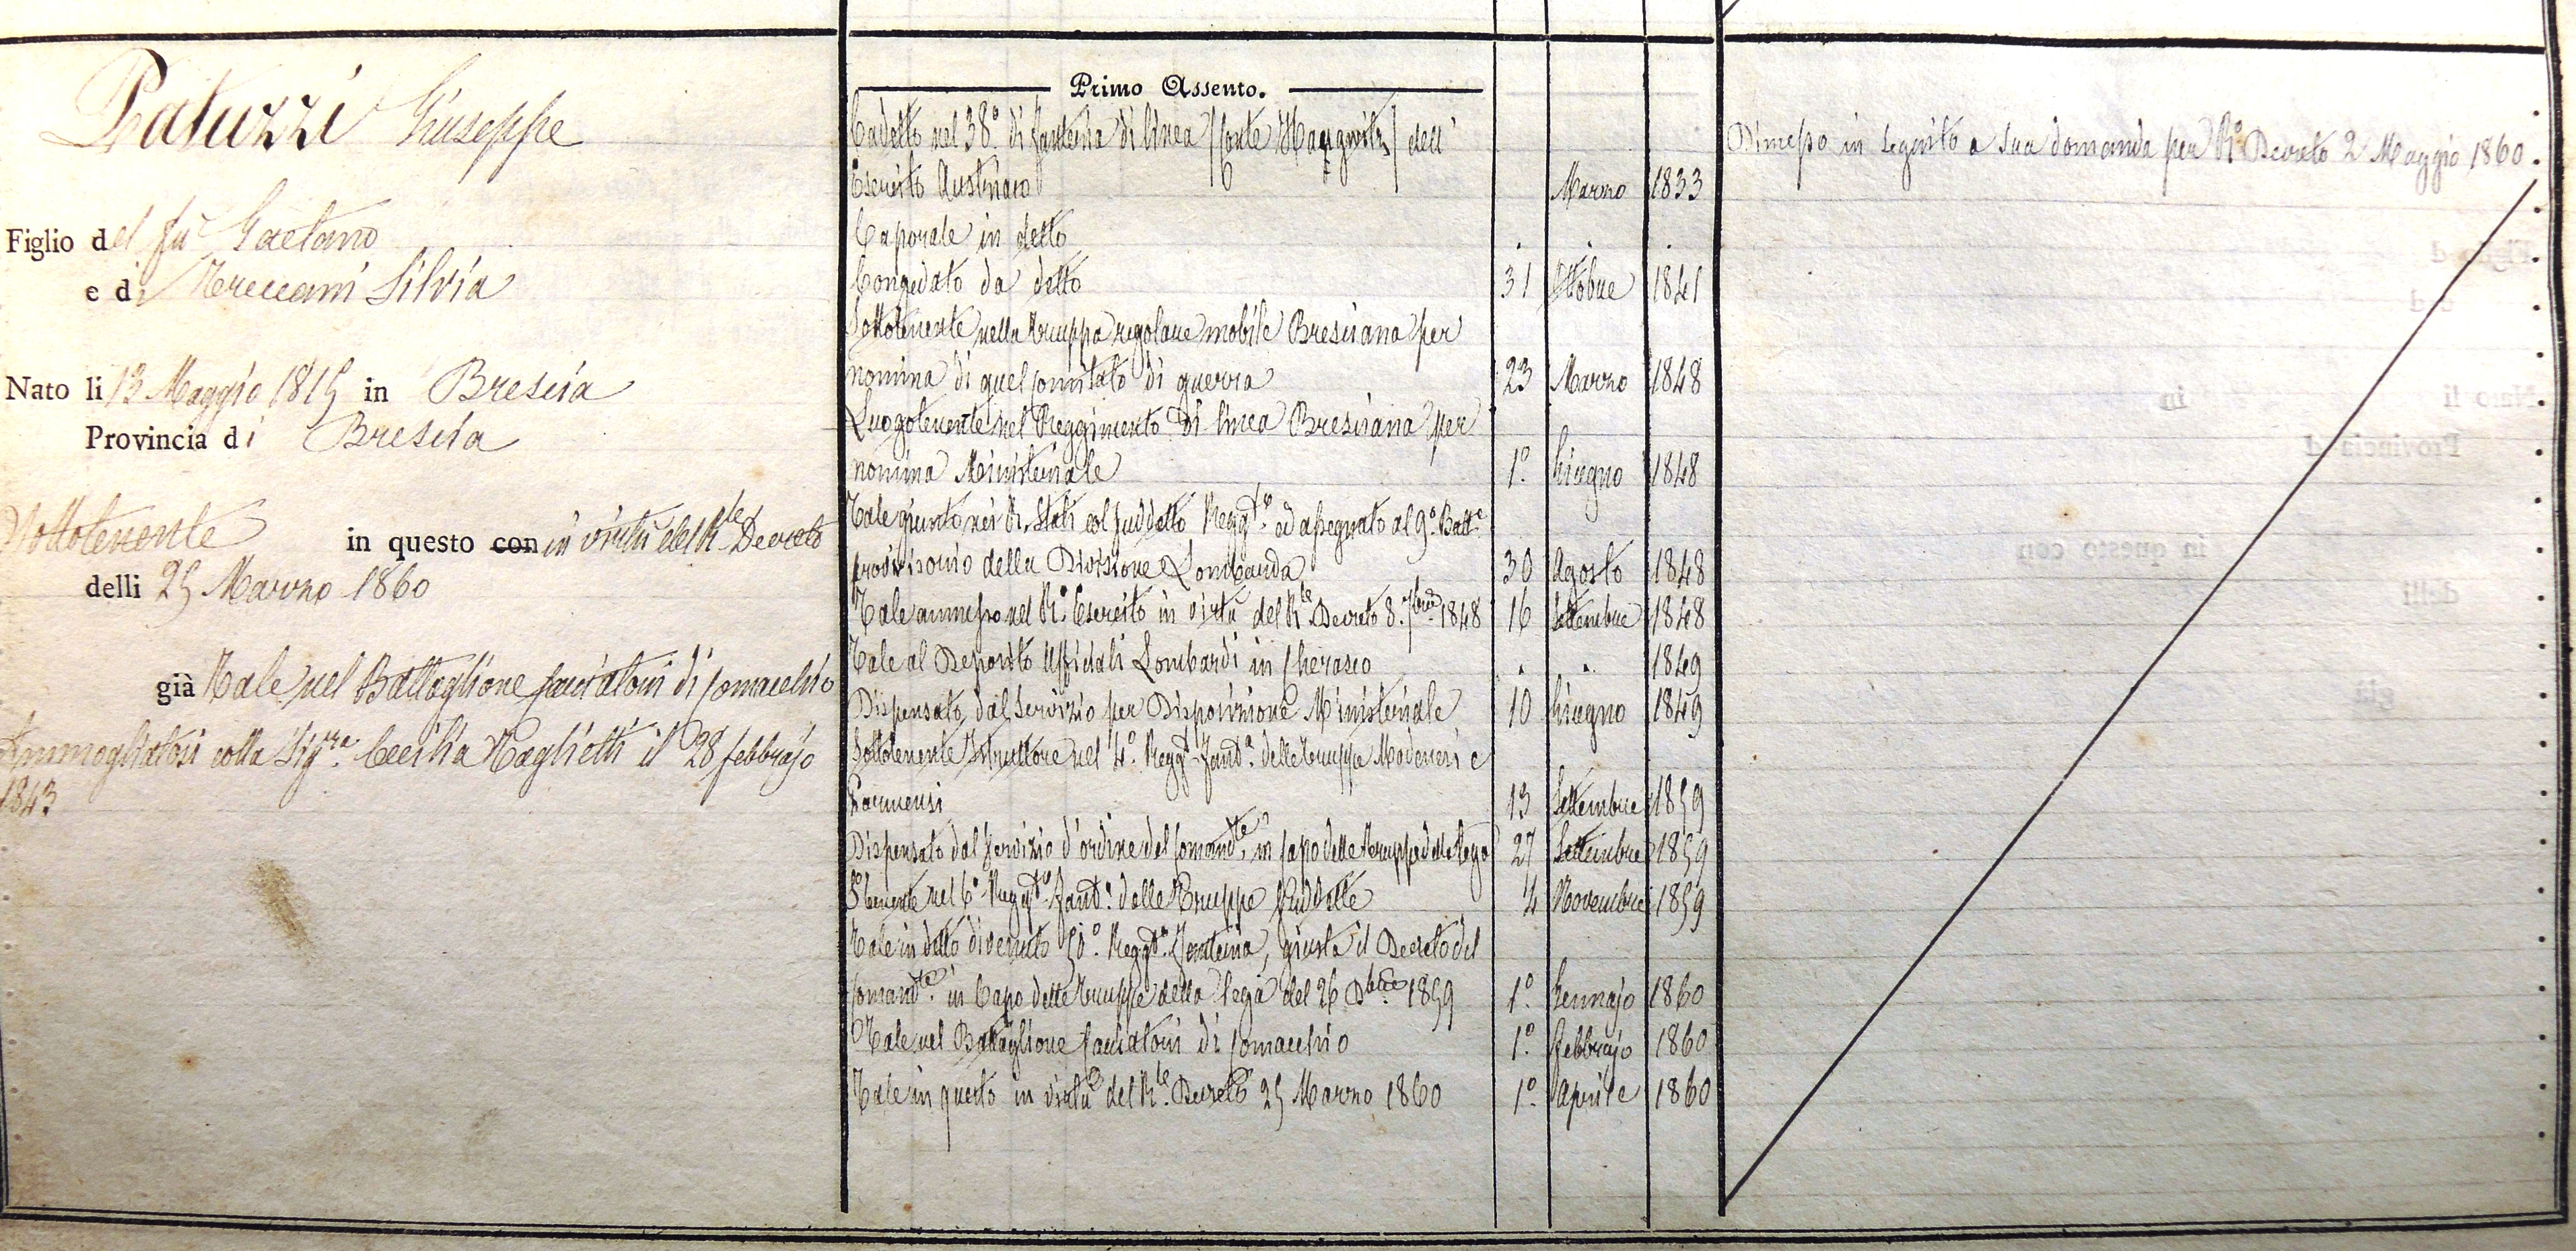 Patuzzi Giuseppe
Figlio del fu Gaetano
e di Treccani Silvia
Nato li 13 Maggio 1815 in Brescia
Provincia di Brescia
Sottotenente in questo con in virtù del R.le Decreto
delli 25 Marzo 1860
già Tale nel Battaglione Cacciatori di Comacchio
Ammogliatosi colla Sig.ra Cecilia Maglietti il 28 febbrajo
1843
Primo Assento.
Cadetto nel 38.° di fanteria di linea (Conte Haugwitz) dell'
Esercito Austriaco Marzo 1833
Caporale in detto . . .
Congedato da detto 31 Ottobre 1841
Sottotenente nella truppa regolare mobile Bresciana per
nomina di quel Comitato di guerra 23 Marzo 1848
Luogotenente nel Reggimento di linea Bresciana per
nomina Ministeriale 1.° Giugno 1848
Tale giunto nei R. Stati col suddetto Regg.to ed assegnato al 9.° Batt.e
provvisorio della Divisione Lombarda 30 Agosto 1848
Tale ammesso nel R.° Esercito in virtù del R.le Decreto 8. 7bre 1848 16 Settembre 1848
Tale al Deposito Uffiziali Lombardi in Cherasco . . 1849
Dispensato dal Servizio per Disposizione Ministeriale 10 Giugno 1849
Sottotenente Istruttore nel 4.° Regg.to Fant.a delle truppe Modenesi e
Parmensi 13 Settembre 1859
Dispensato dal Servizio d'ordine del Comand.te in Capo delle truppe della Lega 27 Settembre 1859
S.Tenente nel 6.° Regg.to Fant.a delle Truppe Suddette 4 Novembre 1859
Tale in detto divenuto 50.° Regg.to Fanteria, giusta il Decreto del
Comand.te in Capo delle truppe della lega del 26 Dbre 1859 1.° Gennajo 1860
Tale nel Battaglione Cacciatori di Comacchio 1.° febbrajo 1860
Tale in questo in virtù del R.le Decreto 25 Marzo 1860 1.° Aprile 1860
Dimesso in seguito a sua domanda per R.° Decreto 2 Maggio 1860.